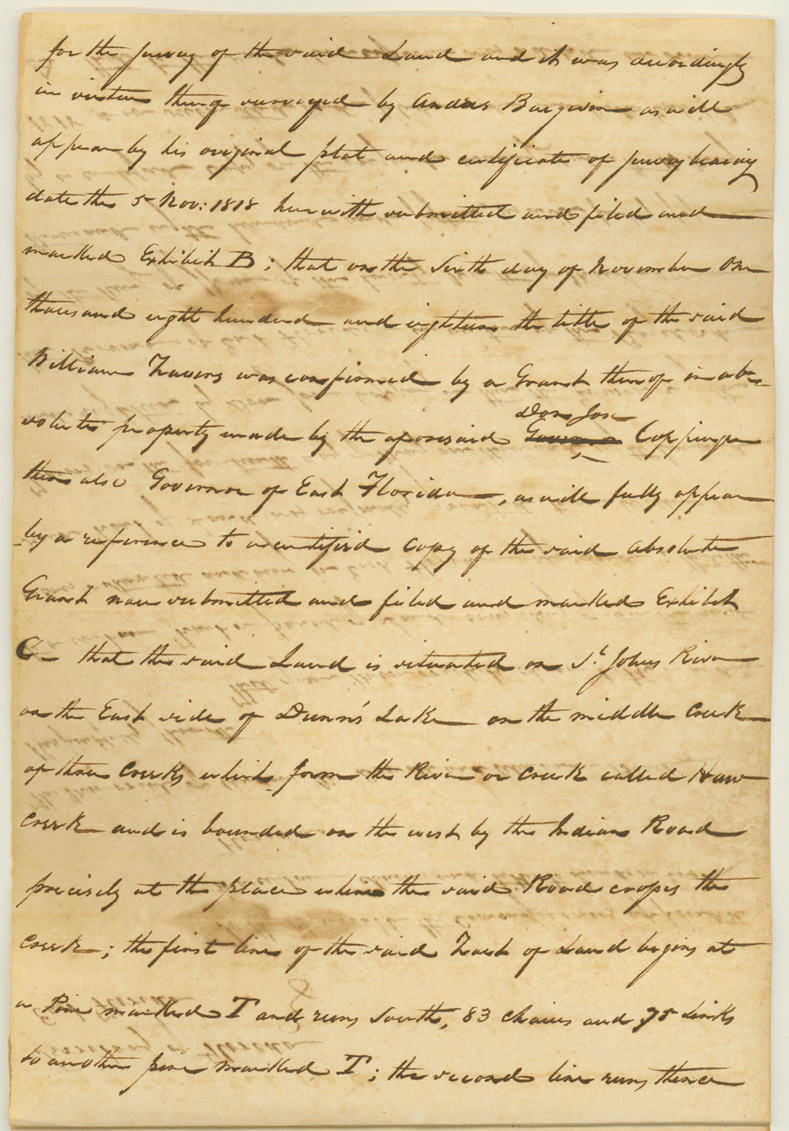 for the Survey of the said Land and it was accordingly
in virtue thereof surveyed by Andres Burgevin as will
appear by his original plat and certificate of survey bearing
date the 5 Nov: 1818 herewith submitted and filed and
marked Exhibit B; that on the Sixth day of November One
thousand eight hundred and eighteen the title of the said
William Travers was confirmed by a Grant thereof in abs-
Don Jose
solute property made by the aforesaid Governor Coppinger
then also Governor of East Florida, as will fully appear
by a reference to a certified copy of the said absolute
Grant now submitted and filed and marked Exhibit
C- that the said Land is situated on St Johns River
on the East side of Dunn's Lake on the middle Creek
of three Creeks which form the River or Creek called Haw
Creek and is bounded on the west by the Indian Road
precisely at the place where the said Road crosses the
Creek; the first line of the said Tract of Land begins at
a Pine marked T and runs South, 83 chains and 75 Links
to another pine marked T; the second line runs thence